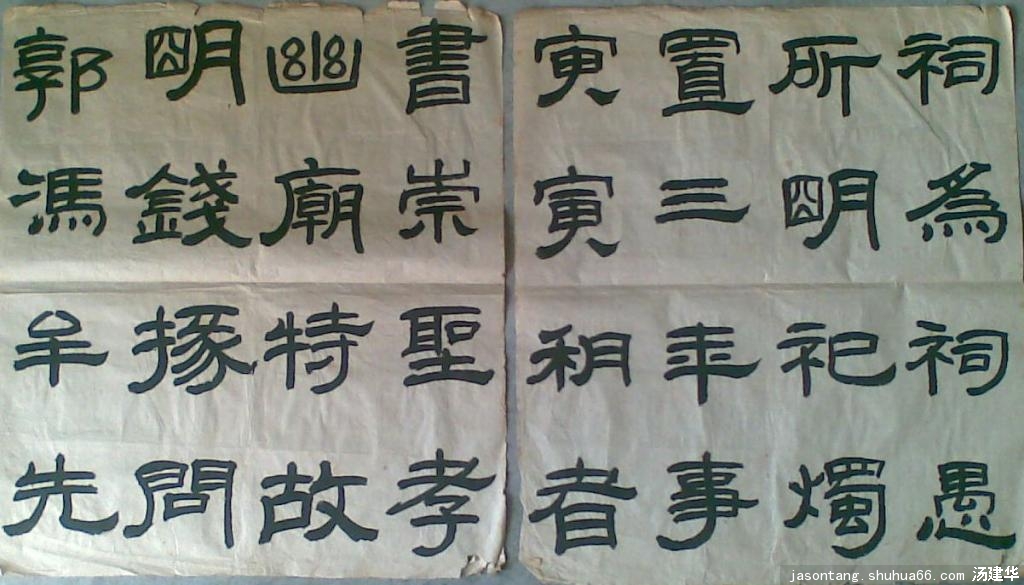 祠為祠愚
所朙祀燭
置三年事
寅者
書崇聖孝
幽廟特故
朙錢掾問
郭馮牟先
jasontang.shuhua66.com 汤建华